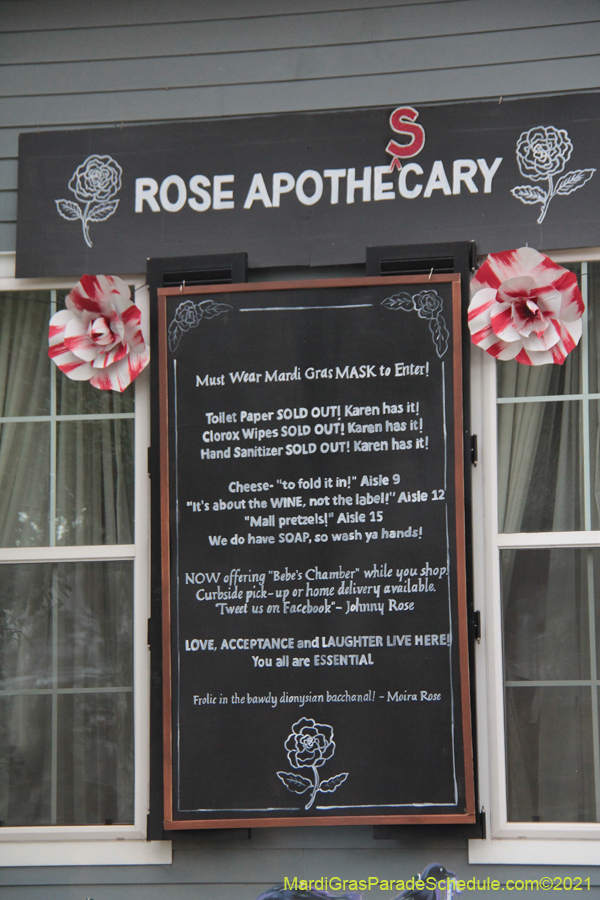 S
ROSE APOTHE^CARY
Must Wear Mardi Gras MASK to Enter!
Toilet Paper SOLD OUT! Karen has it!
Clorox Wipes SOLD OUT! Karen has it!
Hand Sanitizer SOLD OUT! Karen has it!
Cheese- "to fold it in!" Aisle 9
"It's about the WINE, not the label!" Aisle 12
"Mall pretzels!" Aisle 15
We do have SOAP, so wash ya hands!
NOW offering "Bebe's Chamber" while you shop!
Curbside pick-up or home delivery available.
"Tweet us on Facebook"- Johnny Rose
LOVE, ACCEPTANCE and LAUGHTER LIVE HERE!
You all are ESSENTIAL
Frolic in the bawdy dionysian bacchanal! - Moira Rose
MardiGrasParadeSchedule.com©2021